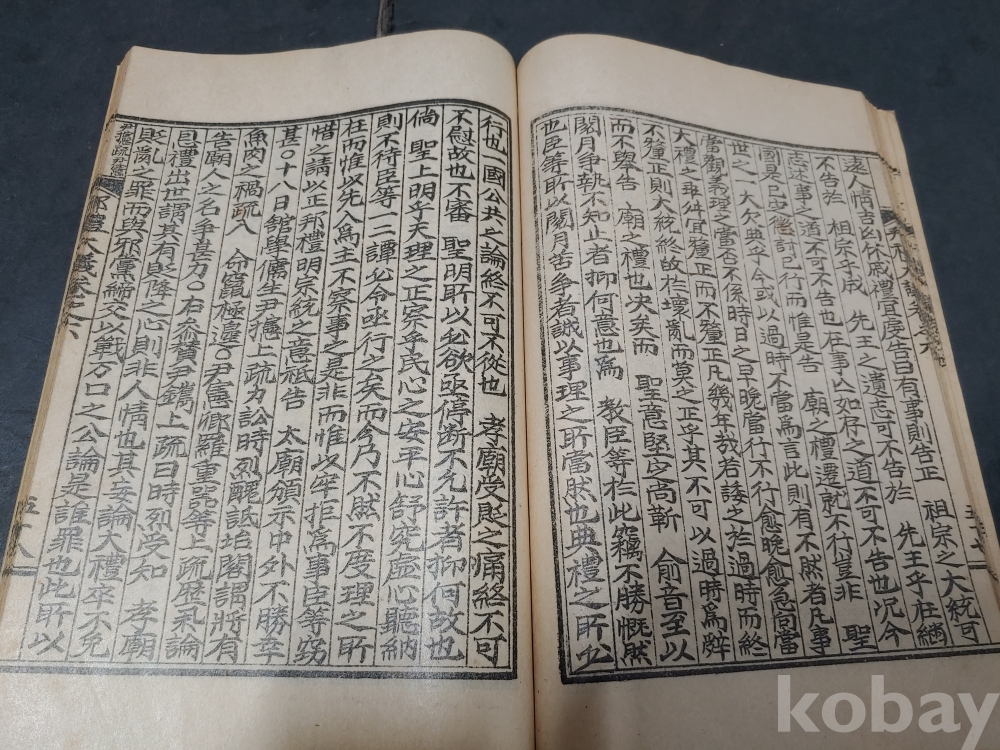 遠人情吉凶休戚禮宜虔告曰有事則告正 祖宗之大統可
不告於 祖宗乎成 先王之遺志可不告於 先王乎在繼
志述事之道不可不告也在事亡如存之道不可不告也况今
國是已定 討已行而惟是告 廟之禮遷就不行豈非 聖
世之一大欠典乎今或以過時不當爲言此則有不然者凡事
當觀義理之當否不係時日之早晚當行不行愈晚愈急當
大禮之乖舛宜釐正而不釐正凡幾年哉若諉之於過時而終
不釐正則大統終於壞亂而莫之正乎其不可以過時爲辭
而不擧告 廟之禮也决矣而 聖意堅㝎尙靳 兪音至以
閱月爭執不知止者抑何意也爲 敎臣等於此竊不勝慨然
也臣等所以閱月苦爭者誠以事理之所當然也典禮之所必
行也一國公共之論終不可不從也 孝廟受貶之痛終不可
不慰故也不審 聖明所以必欲亟停斷不允許者抑何故也
倘 聖上明乎天理之正察乎民心之安平心舒究虛心聽納
則不待臣等一二譚必令亟行之矣而今乃不然不度理之所
在而惟以先入爲主不察事之是非而惟以牢拒爲事臣等竊
惜之請以正邦禮明宗統之意祗告 太廟頒示中外不勝幸
甚○十八日舘學儒生尹攇上疏力訟時烈醜詆坮閣謂將有
魚肉之禍疏入 命竄極邊○尹憲 羅重 等上疏歷 論
告廟人之名爭甚力○右叅贊尹鑴上疏曰時烈受知 孝廟
以禮出世謂其有貶降之心則非人情也其妄論大禮卒不免
貶 爲之罪而與邪黨締交以戰万口之公論是誰罪也此所以
五十八
kobay